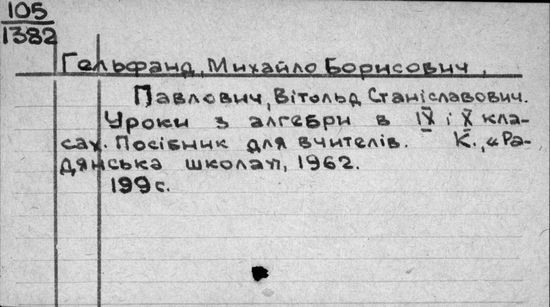 105
1382
Гельфанд, Михайло Борисович,
Павлович, Вітольд Станіславович.
Уроки з алгебри в IX і X кла-
сах. Посібник для вчителів. К., „Ра-
дянська школа", 1962.
199 с.